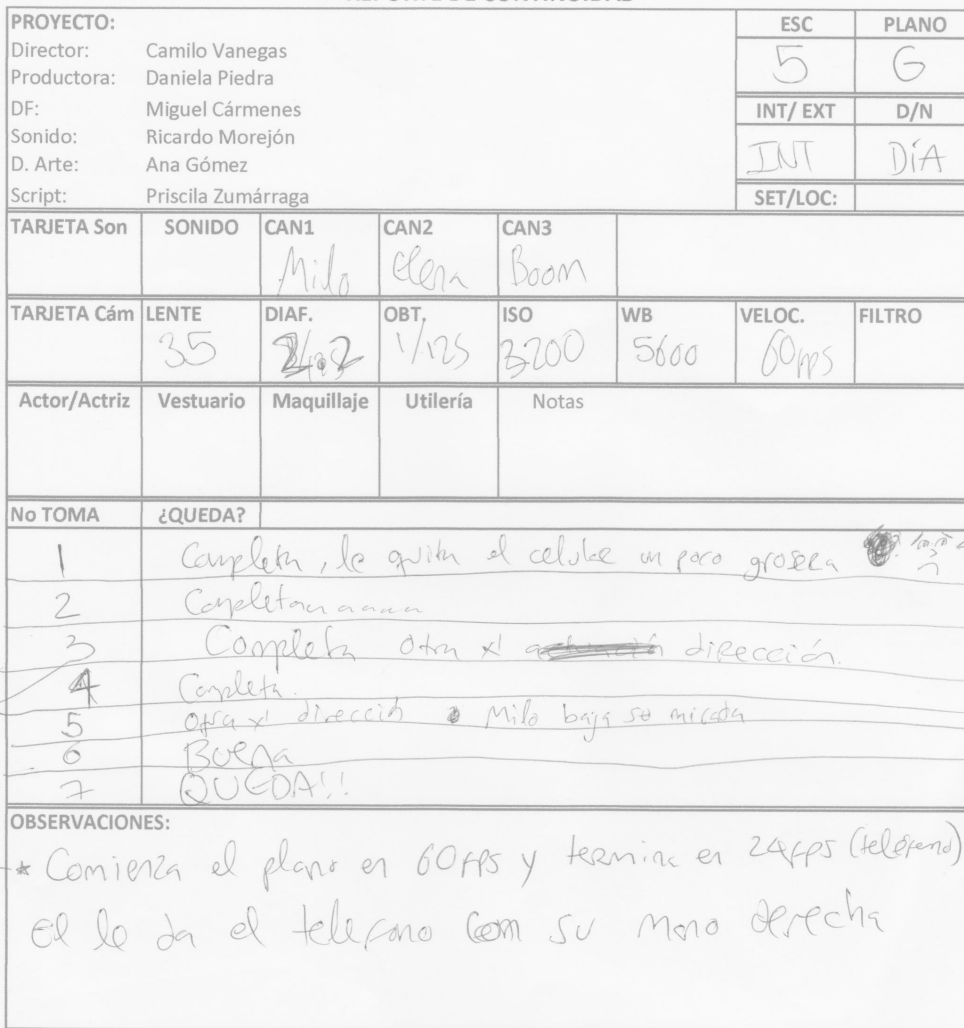 REPORTE DE CONTINUIDAD
PROYECTO: ESC PLANO
Director: Camilo Vanegas 5 G
Productora: Daniela Piedra
DF: Miguel Cármenes INT/ EXT D/N
Sonido: Ricardo Morejón INT DíA
D. Arte: Ana Gómez
Script: Priscila Zumárraga SET/LOC:
TARJETA Son SONIDO CAN1 CAN2 CAN3
Milo Elena Boom
TARJETA Cám LENTE DIAF. OBT. ISO WB VELOC. FILTRO
35 2.2 1/125 3200 5600 60fps
Actor/Actriz Vestuario Maquillaje Utilería Notas
No TOMA ¿QUEDA?
1 Completa, le quita el celular un poco grosera
2 Completa
3 Completa otra x' dirección.
4 Completa.
5 Otra x' dirección Milo baja su mirada
6 Buena
7 QUEDA!!
OBSERVACIONES:
* Comienza el plano en 60fps y termina en 24fps (teléfono)
El le da el telefono con su mano derecha